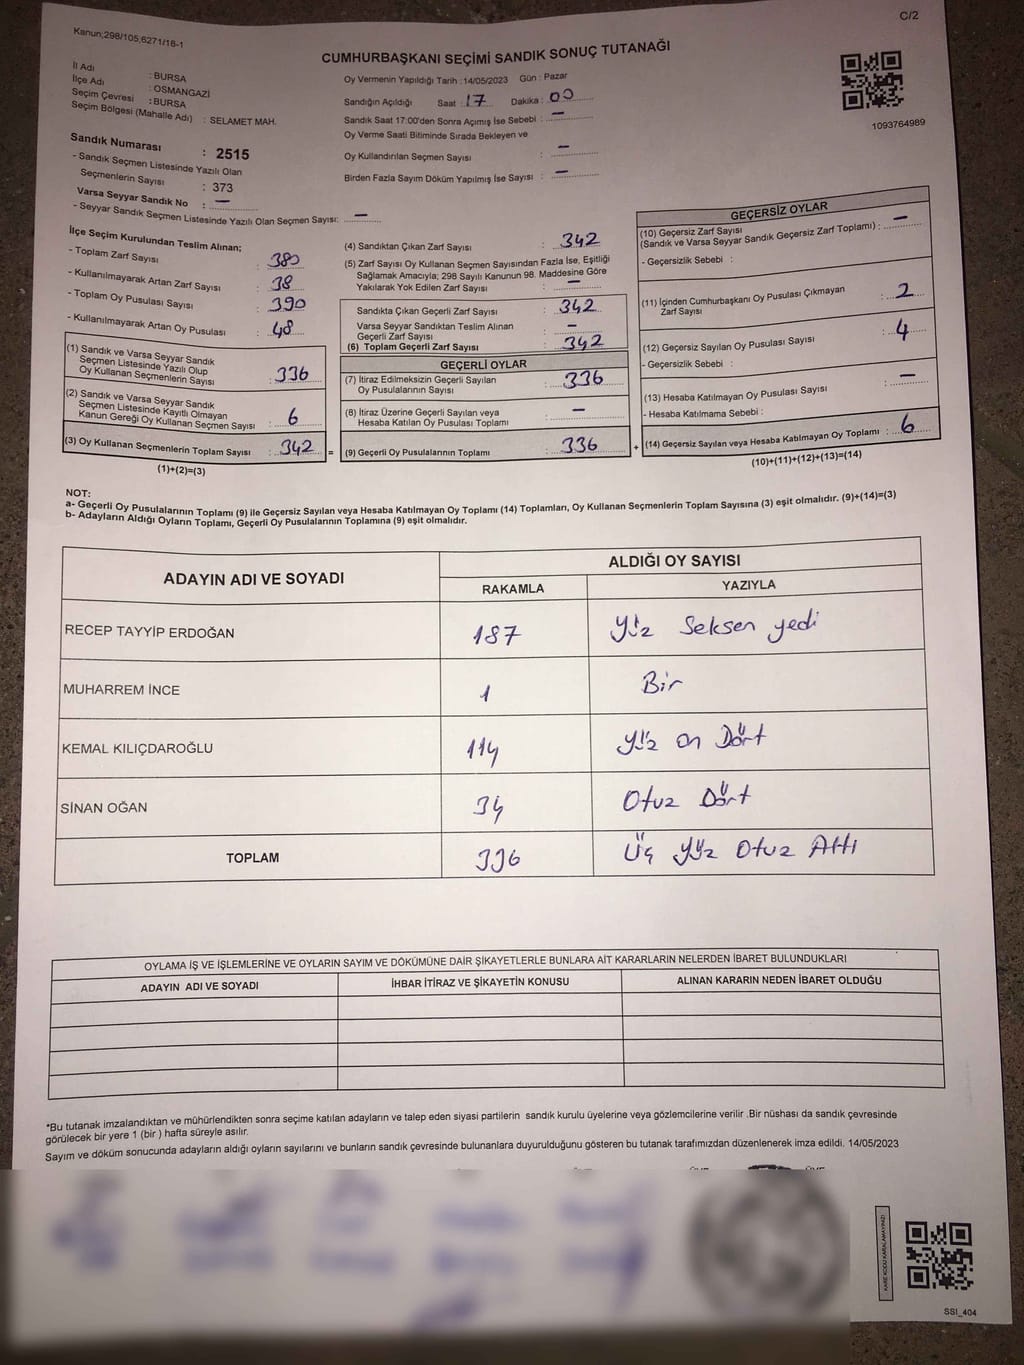 Kanun;298/105,6271/18-1
C/2
CUMHURBAŞKANI SEÇİMİ SANDIK SONUÇ TUTANAĞI
İl Adı : BURSA
İlçe Adı : OSMANGAZİ
Seçim Çevresi : BURSA
Seçim Bölgesi (Mahalle Adı) : SELAMET MAH.
Sandık Numarası : 2515
- Sandık Seçmen Listesinde Yazılı Olan
Seçmenlerin Sayısı : 373
Varsa Seyyar Sandık No : —
- Seyyar Sandık Seçmen Listesinde Yazılı Olan Seçmen Sayısı: —
Oy Vermenin Yapıldığı Tarih :14/05/2023 Gün : Pazar
Sandığın Açıldığı Saat : 17 Dakika : 00
Sandık Saat 17:00'den Sonra Açımış İse Sebebi : —
Oy Verme Saati Bitiminde Sırada Bekleyen ve
Oy Kullandırılan Seçmen Sayısı : —
Birden Fazla Sayım Döküm Yapılmış İse Sayısı : —
1093764989
İlçe Seçim Kurulundan Teslim Alınan;
- Toplam Zarf Sayısı : 380
- Kullanılmayarak Artan Zarf Sayısı : 38
- Toplam Oy Pusulası Sayısı : 390
- Kullanılmayarak Artan Oy Pusulası : 48
(1) Sandık ve Varsa Seyyar Sandık
Seçmen Listesinde Yazılı Olup
Oy Kullanan Seçmenlerin Sayısı : 336
(2) Sandık ve Varsa Seyyar Sandık
Seçmen Listesinde Kayıtlı Olmayan
Kanun Gereği Oy Kullanan Seçmen Sayısı : 6
(3) Oy Kullanan Seçmenlerin Toplam Sayısı : 342 =
(1)+(2)=(3)
(4) Sandıktan Çıkan Zarf Sayısı : 342
(5) Zarf Sayısı Oy Kullanan Seçmen Sayısından Fazla İse, Eşitliği
Sağlamak Amacıyla; 298 Sayılı Kanunun 98. Maddesine Göre
Yakılarak Yok Edilen Zarf Sayısı : —
Sandıkta Çıkan Geçerli Zarf Sayısı : 342
Varsa Seyyar Sandıktan Teslim Alınan
Geçerli Zarf Sayısı : —
(6) Toplam Geçerli Zarf Sayısı : 342
GEÇERLİ OYLAR
(7) İtiraz Edilmeksizin Geçerli Sayılan
Oy Pusulalarının Sayısı : 336
(8) İtiraz Üzerine Geçerli Sayılan veya
Hesaba Katılan Oy Pusulası Toplamı : —
(9) Geçerli Oy Pusulalarının Toplamı : 336 +
GEÇERSİZ OYLAR
(10) Geçersiz Zarf Sayısı
(Sandık ve Varsa Seyyar Sandık Geçersiz Zarf Toplamı) : —
- Geçersizlik Sebebi :
(11) İçinden Cumhurbaşkanı Oy Pusulası Çıkmayan
Zarf Sayısı : 2
(12) Geçersiz Sayılan Oy Pusulası Sayısı : 4
- Geçersizlik Sebebi :
(13) Hesaba Katılmayan Oy Pusulası Sayısı : —
- Hesaba Katılmama Sebebi :
(14) Geçersiz Sayılan veya Hesaba Katılmayan Oy Toplamı : 6
(10)+(11)+(12)+(13)=(14)
NOT:
a- Geçerli Oy Pusulalarının Toplamı (9) ile Geçersiz Sayılan veya Hesaba Katılmayan Oy Toplamı (14) Toplamları, Oy Kullanan Seçmenlerin Toplam Sayısına (3) eşit olmalıdır. (9)+(14)=(3)
b- Adayların Aldığı Oyların Toplamı, Geçerli Oy Pusulalarının Toplamına (9) eşit olmalıdır.
ADAYIN ADI VE SOYADI ALDIĞI OY SAYISI
RAKAMLA YAZIYLA
RECEP TAYYİP ERDOĞAN 187 Yüz Seksen yedi
MUHARREM İNCE 1 Bir
KEMAL KILIÇDAROĞLU 114 Yüz on Dört
SİNAN OĞAN 34 Otuz Dört
TOPLAM 336 Üç Yüz Otuz Altı
OYLAMA İŞ VE İŞLEMLERİNE VE OYLARIN SAYIM VE DÖKÜMÜNE DAİR ŞİKAYETLERLE BUNLARA AİT KARARLARIN NELERDEN İBARET BULUNDUKLARI
ADAYIN ADI VE SOYADI İHBAR İTİRAZ VE ŞİKAYETİN KONUSU ALINAN KARARIN NEDEN İBARET OLDUĞU
*Bu tutanak imzalandıktan ve mühürlendikten sonra seçime katılan adayların ve talep eden siyasi partilerin sandık kurulu üyelerine veya gözlemcilerine verilir .Bir nüshası da sandık çevresinde
görülecek bir yere 1 (bir ) hafta süreyle asılır.
Sayım ve döküm sonucunda adayların aldığı oyların sayılarını ve bunların sandık çevresinde bulunanlara duyurulduğunu gösteren bu tutanak tarafımızdan düzenlenerek imza edildi. 14/05/2023
KARE KODU KARALAMAYINIZ!
SSI_404